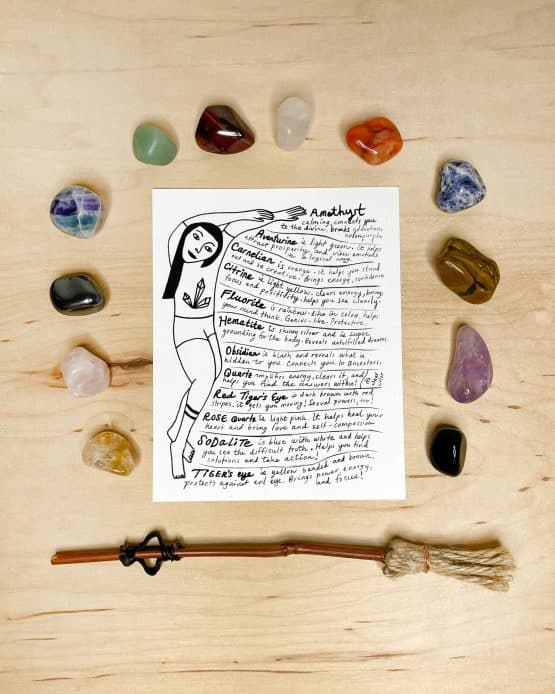 Amethyst
calming, connects you
to the divine. breaks addiction
Aventurine is light green. It helps
attract prosperity, and view emotions
in a logical way.
Carnelian is orange. it helps you stand
out and be creative. Brings energy, confidence
Citrine is light yellow. clears energy, brings
focus and positivity. helps you see clearly.
Fluorite is rainbow-like in color. helps
your mind think. Genius-like. Protective.
Hematite is shiney silver and is super
grounding to the body. Reveals unfulfilled dreams.
Obsidian is black and reveals what is
hidden to you connects you to Ancestors.
Quartz amplifies energy, clears it, and
helps you find the answers within!
Red Tiger's Eye is dark brown with red
stripes. it gets you moving! Sexual powers, too!
ROSE Quartz is light pink. It helps heal your
heart and bring love and self-compassion
SoDaLiTe is blue with white and helps
you see the difficult truth. Helps you find
solutions and take action!
TIGER'S eye is yellow banded and brown.
protects against evil eye. Brings power, energy,
and focus!